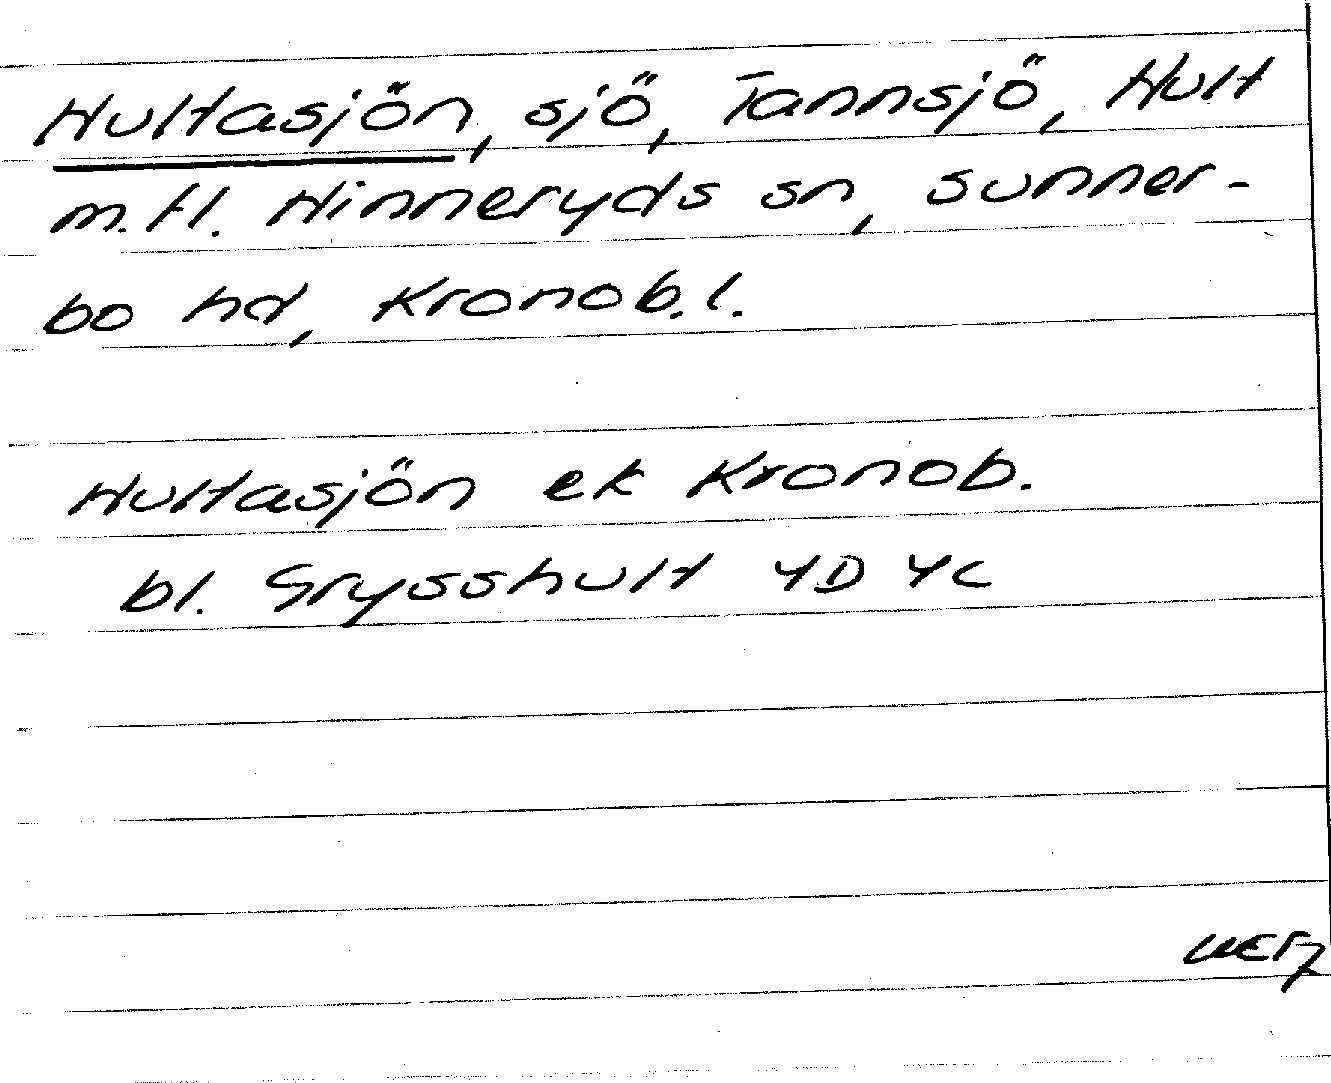 Hultasjön, sjö, Tannsjö, Hult
m.fl. Hinneryds sn, Sunner-
bo hd, Kronob.l.
Hultasjön ek Kronob.
bl. Grysshult 4D 4c